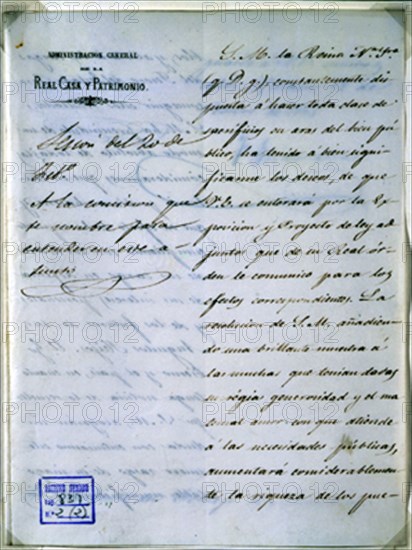 ADMINISTRACION GENERAL
DE LA
REAL CASA Y PATRIMONIO.
Sesion del 20 de
Feb.º
A la comision que
se nombre para
entender en este a-
sunto
S. M. la Reina N.ª S.ra
(q. D. g.), constantemente dis-
puesta á hacer toda clase de
sacrificios en aras del bien pú-
blico, ha tenido á bien signi-
ficarme los deseos, de que
V. E. se enterará por la Ex-
posicion y Proyecto de ley ad-
junto que de su Real ór-
den le comunico para los
efectos correspondientes. La
resolucion de S. M., añadien-
do una brillante muestra á
las muchas que tenian dadas
su régia generosidad y el ma-
ternal amor con que atiende
á las necesidades públicas,
aumentará considerablemen-
te la riqueza de los pue-
837
2 (2)